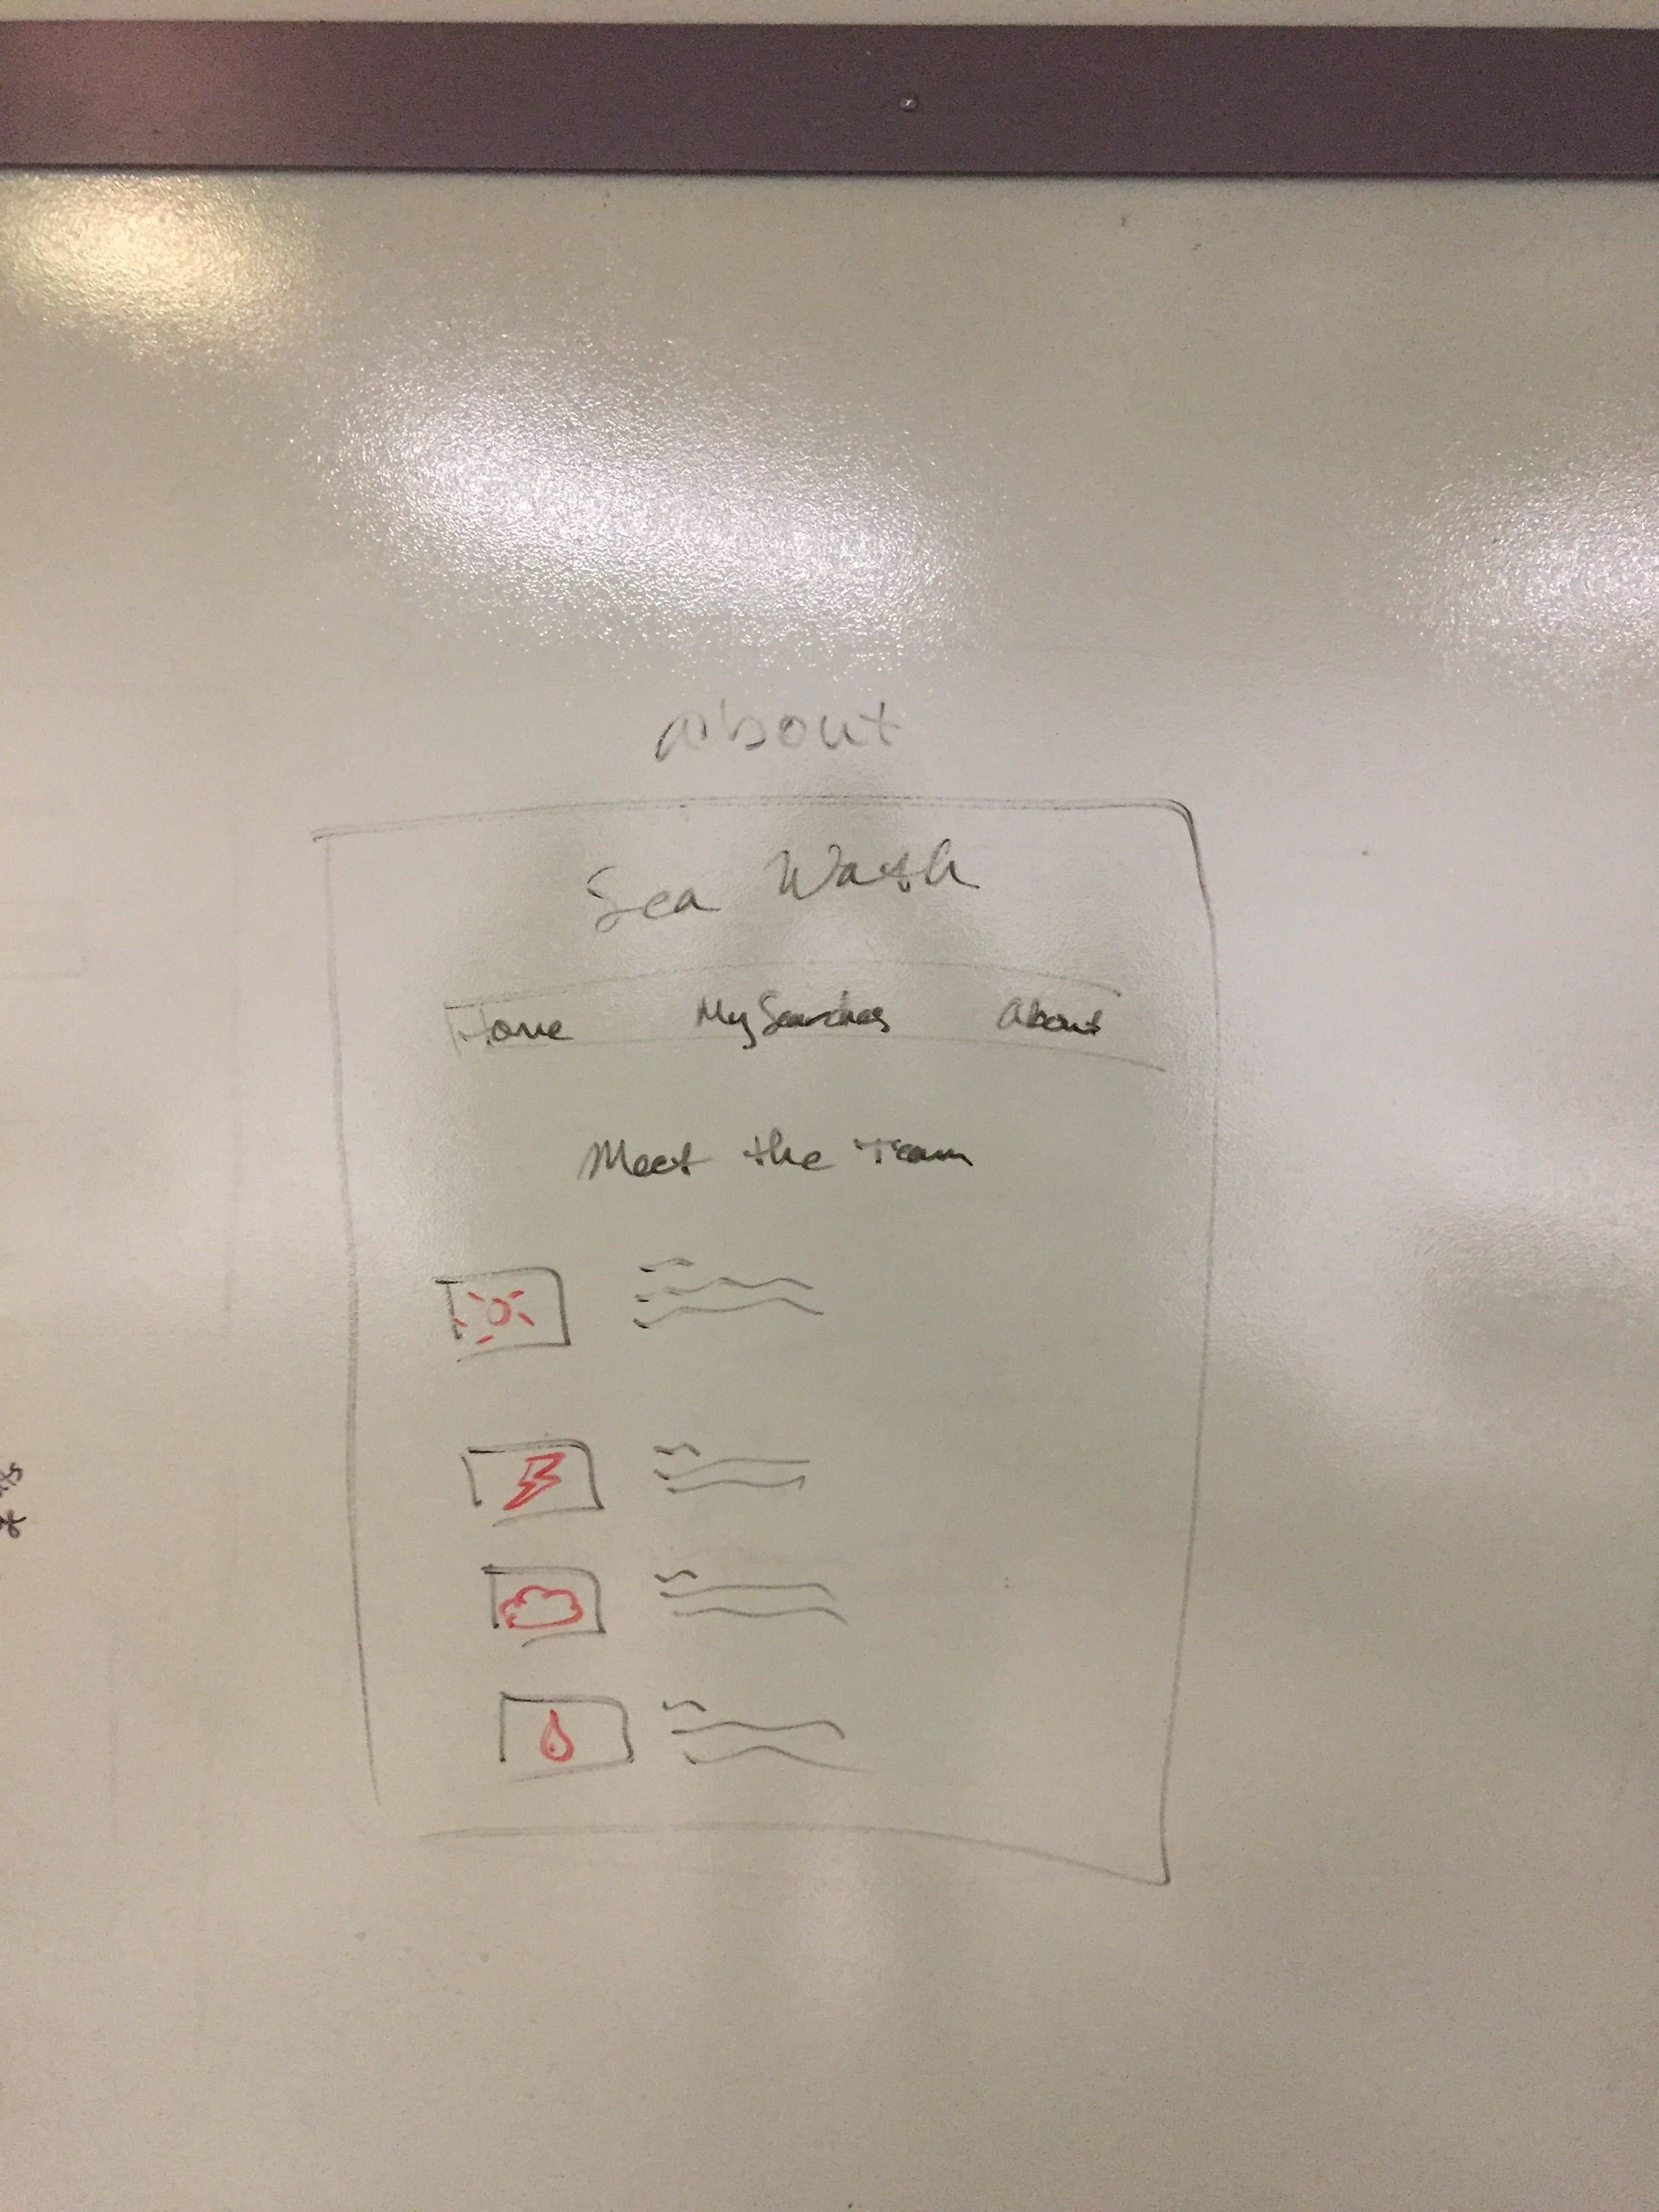 About
Sea Wash
Home My Searches About
Meet the Team